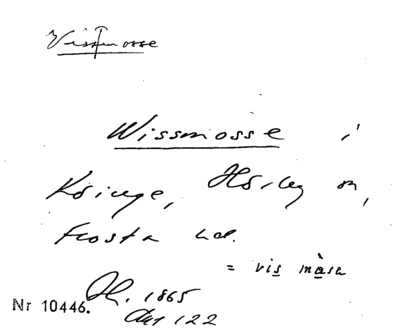 Vissmosse
Wissmosse i
Köinge, Hörby sn,
Frosta hd.
= vis màsa
Nr 10446. H. 1865
Akt 122